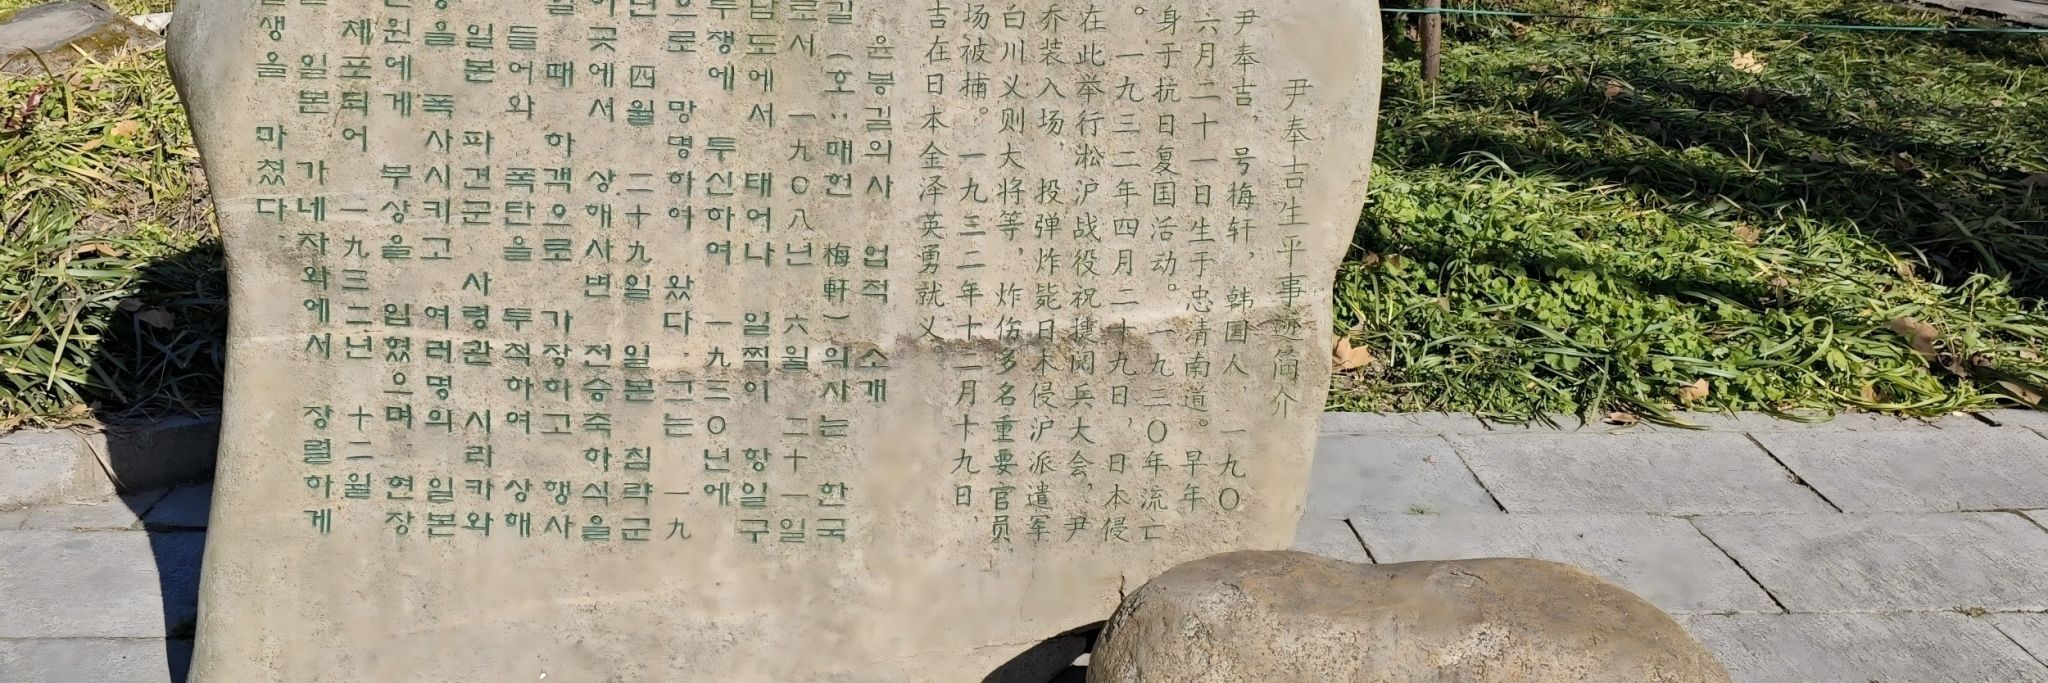 尹奉吉生平事迹简介
尹奉吉，号梅轩，韩国人，一九〇
六月二十一日生于忠清南道。早年
身于抗日复国活动。一九三〇年流亡
。一九三二年四月二十九日，日本侵
在此举行淞沪战役祝捷阅兵大会，尹
乔装入场，投弹炸毙日本侵沪派遣军
白川义则大将等，炸伤多名重要官员
场被捕。一九三二年十二月十九日
吉在日本金泽英勇就义。
윤봉길의사 업적 소개
길 (호:매헌 梅軒) 의사는 한국
로서 一九〇八년 六월 二十一일
남도에서 태어나 일찍이 항일구
투쟁에 투신하여 一九三〇년에
으로 망명하여 왔다. 그는 一九
년 四월 二十九일 일본 침략군
이곳에서 상해사변 전승축하식을
때 하객으로 가장하고 행사
들어와 폭탄을 투척하여 상해
일본 파견군 사령관 시라카와
을 폭사시키고 여러명의 일본
원에게 부상을 입혔으며 현장
체포되어 一九三二년 十二월
일본 가네자와에서 장렬하게
생을 마쳤다.